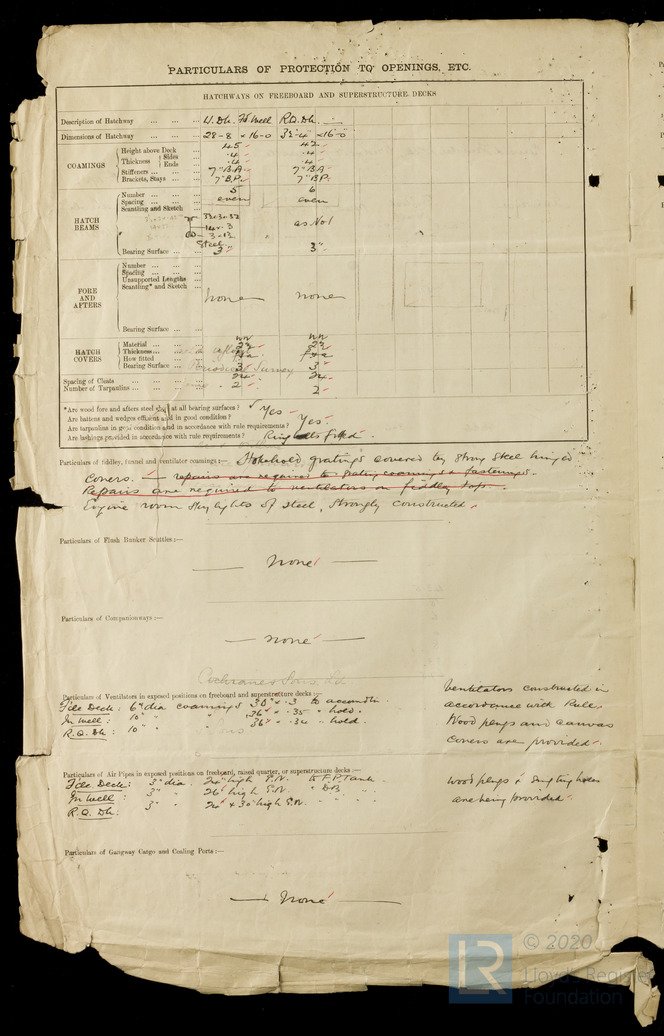 PARTICULARS OF PROTECTION TO OPENINGS, ETC.
HATCHWAYS ON FREEBOARD AND SUPERSTRUCTURE DECKS
Description of Hatchway ... ... ... W. Dk. Fd Well R.Q. Dk.
Dimensions of Hatchway ... ... ... 28-8 × 16-0 32-4 × 16-0
COAMINGS
Height above Deck 45 42
Thickness Sides .4 .4
Ends .4 .4
Stiffeners ... ... ... 7" B.A. 7" BA
Brackets, Stays ... ... 7" B.P. 7" B.P.
HATCH BEAMS
Number ... ... ... 5 6
Spacing ... ... ... even even
Scantling and Sketch ...
as No 1
Steel
Bearing Surface ... ... 3" 3"
FORE AND AFTERS
Number ... ... ...
Spacing ... ... ...
Unsupported Lengths ...
Scantling* and Sketch ...
none none
Bearing Surface ... ...
HATCH COVERS
Material ... ... ... WW WW
Thickness... ... ... 2½ 2½
How fitted ... ... f & a f & a
Bearing Surface ... 3 3
Periodical Survey
Spacing of Cleats ... ... ... 24 24
Number of Tarpaulins ... ... ... 2 2
*Are wood fore and afters steel shod at all bearing surfaces?
Are battens and wedges efficient and in good condition? Yes
Are tarpaulins in good condition and in accordance with rule requirements? Yes
Are lashings provided in accordance with rule requirements? Ring bolts fitted.
Particulars of fiddley, funnel and ventilator coamings:— Stokehold gratings covered by strong steel hinged
Covers. — repairs are required to grating coamings & fastenings.
Repairs are required to ventilators on fiddley top.
Engine room skylights of steel, strongly constructed
Particulars of Flush Bunker Scuttles:—
— None —
Particulars of Companionways:—
— none —
Cochrane & Sons Ld
Particulars of Ventilators in exposed positions on freeboard and superstructure decks:—
Fcle Deck: 6" dia coamings 30" × .3 to accomdn.
In Well: 10" " " 36" × .35 " hold.
R.Q. Dk: 10" " " 36" × .34 " hold.
Ventilators constructed in
accordance with Rule.
Wood plugs and canvas
covers are provided.
Particulars of Air Pipes in exposed positions on freeboard, raised quarter, or superstructure decks:—
Fcle. Deck: 3" dia. 24" high S.N. to F.P. Tank
In Well: 3" " 26" high S.N. " DB "
R.Q. Dk. 3" " 24" & 30" high S.N. " " "
Wood plugs &
are being provided.
Particulars of Gangway Cargo and Coaling Ports:—
— None —
LR
© 2020
Lloyd's Register
Foundation